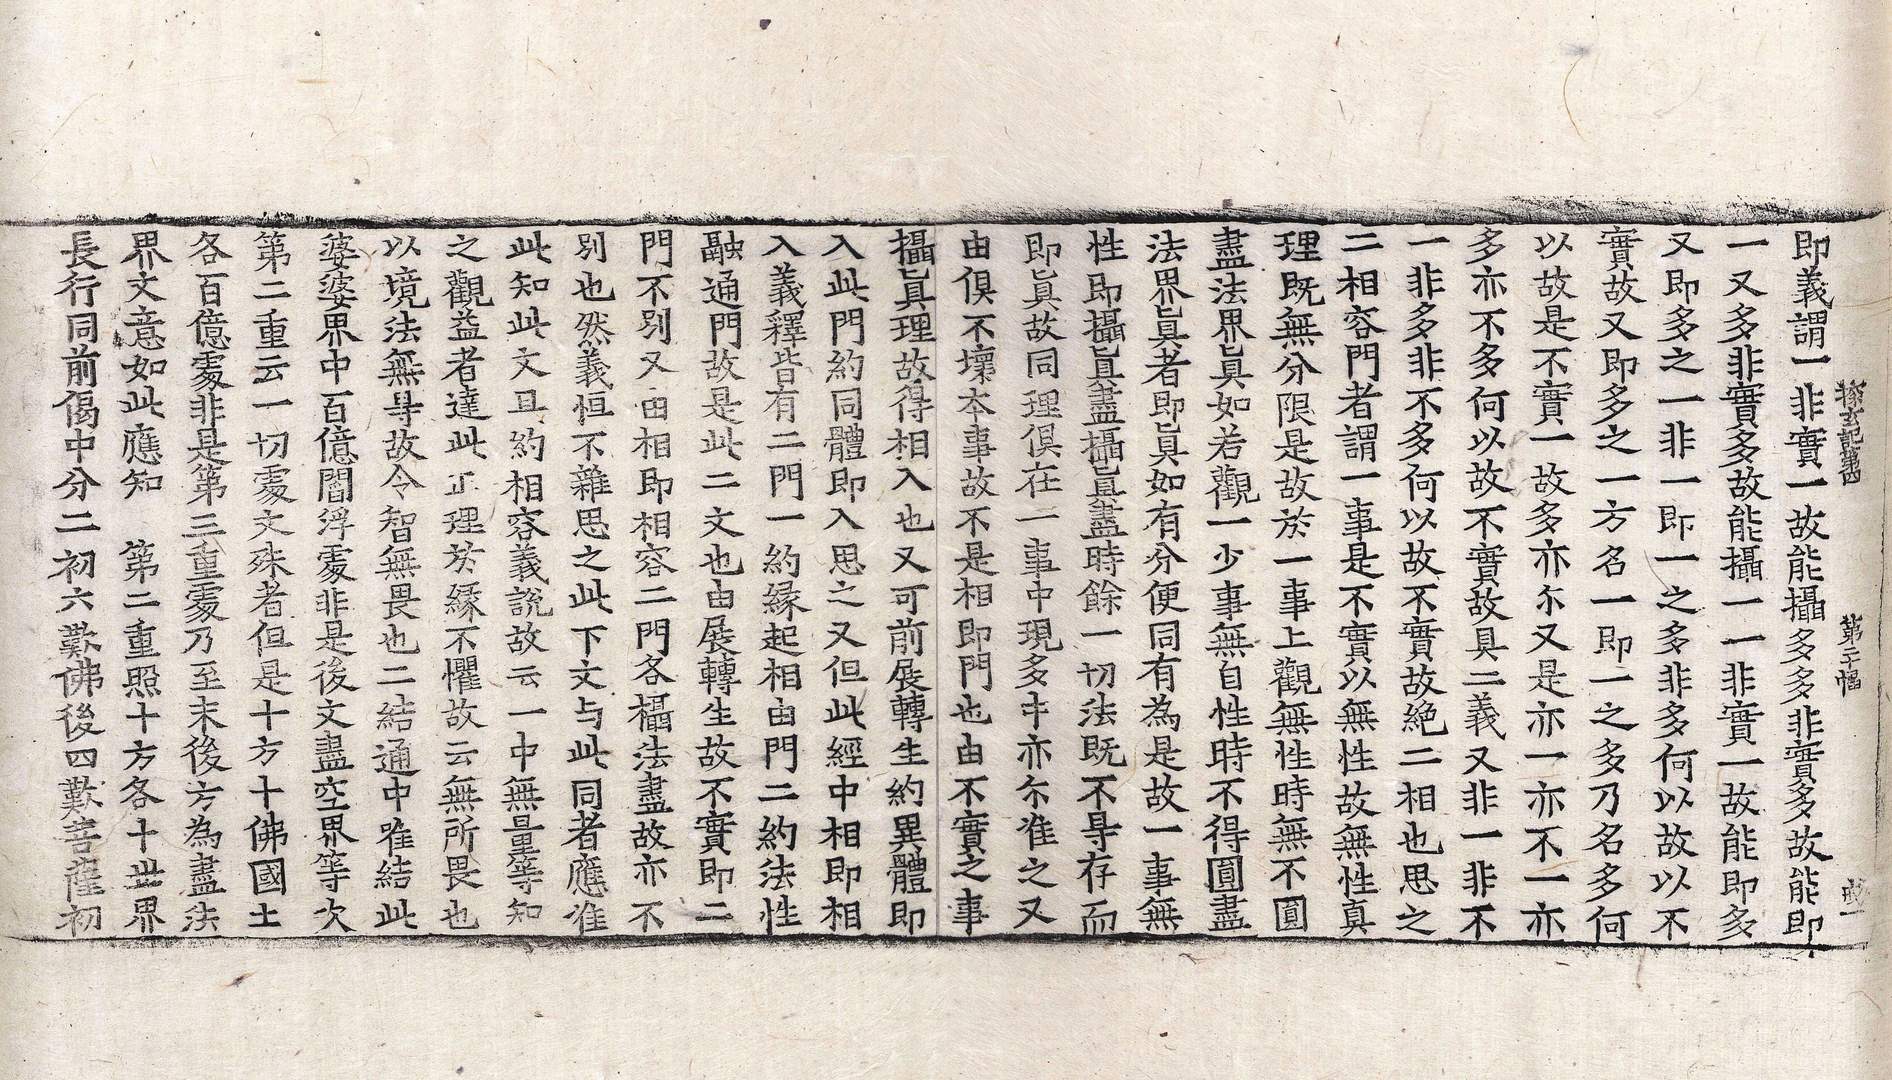 探玄記第四 第二十幅
即義謂一非實一故能攝多多非實多故能即
一又多非實多故能攝一一非實一故能即多
又即多之一非一即一之多非多何以故以不
實故又即多之一方名一即一之多乃名多何
以故是不實一故多亦尒又是亦一亦不一亦
多亦不多何以故不實故具二義又非一非不
一非多非不多何以故不實故絶二相也思之
二相容門者謂一事是不實以無性故無性真
理旣無分限是故於一事上觀無性時無不圓
盡法界眞如若觀一少事無自性時不得圓盡
法界眞者即眞如有分便同有為是故一事無
性即攝眞盡攝眞盡時餘一切法旣不㝵存而
即眞故同理俱在一事中現多中亦尒准之又
由俱不壞本事故不是相即門也由不實之事
攝眞理故得相入也又可前展轉生約異體即
入此門約同體即入思之又但此經中相即相
入義釋皆有二門一約縁起相由門二約法性
融通門故是此二文也由展轉生故不實即二
門不別又由相即相容二門各攝法盡故亦不
別也然義恒不雜思之此下文与此同者應准
此知此文且約相容義說故云一中無量等知
之觀益者達此正理於縁不懼故云無所畏也
以境法無㝵故令智無畏也二結通中唯結此
娑婆界中百億閻浮處非是後文盡空界等次
第二重云一切處文殊者但是十方十佛國土
各百億處非是第三重處乃至末後方為盡法
界文意如此應知 第二重照十方各十世界
長行同前偈中分二初六歎佛後四歎菩薩初